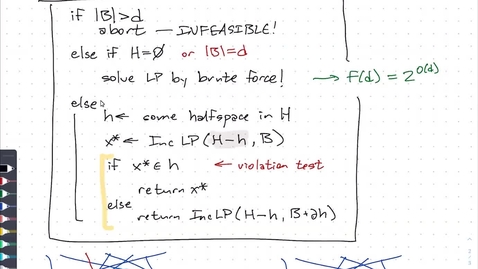 if |B|>d
abort — INFEASIBLE!
else if H=∅ or |B|=d
solve LP by brute force! → F(d) = 2^O(d)
else
h← some halfspace in H
x* ← Inc LP(H-h, B)
if x* ∈ h ← violation test
return x*
else
return IncLP(H-h, B+∂h)